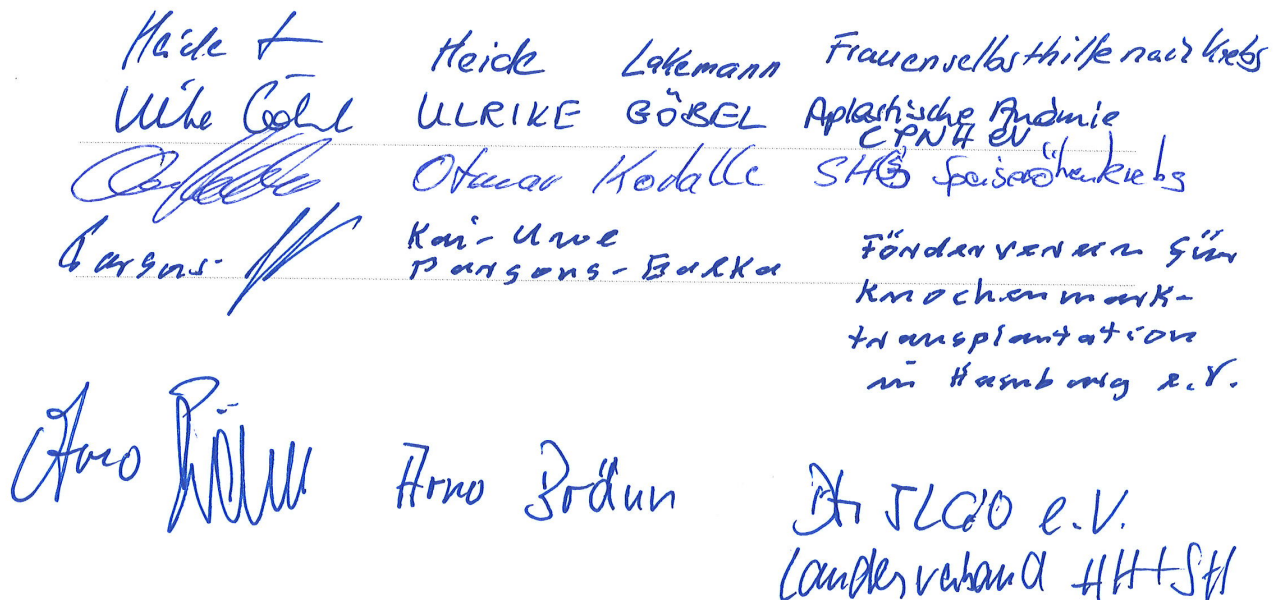 Heide Heide Lakemann Frauenselbsthilfe nach Krebs
ULRIKE GÖBEL Aplastische Anämie
e.V.
Otmar Kodalle SHG Speiseröhrenkrebs
Parsons- Kai-Uwe
Parsons-Balka Förderverein für
Knochenmark-
transplantation
in Hamburg e.V.
Arno Arno Bräun
Dt. ILCO e.V.
Landesverband HH+SH